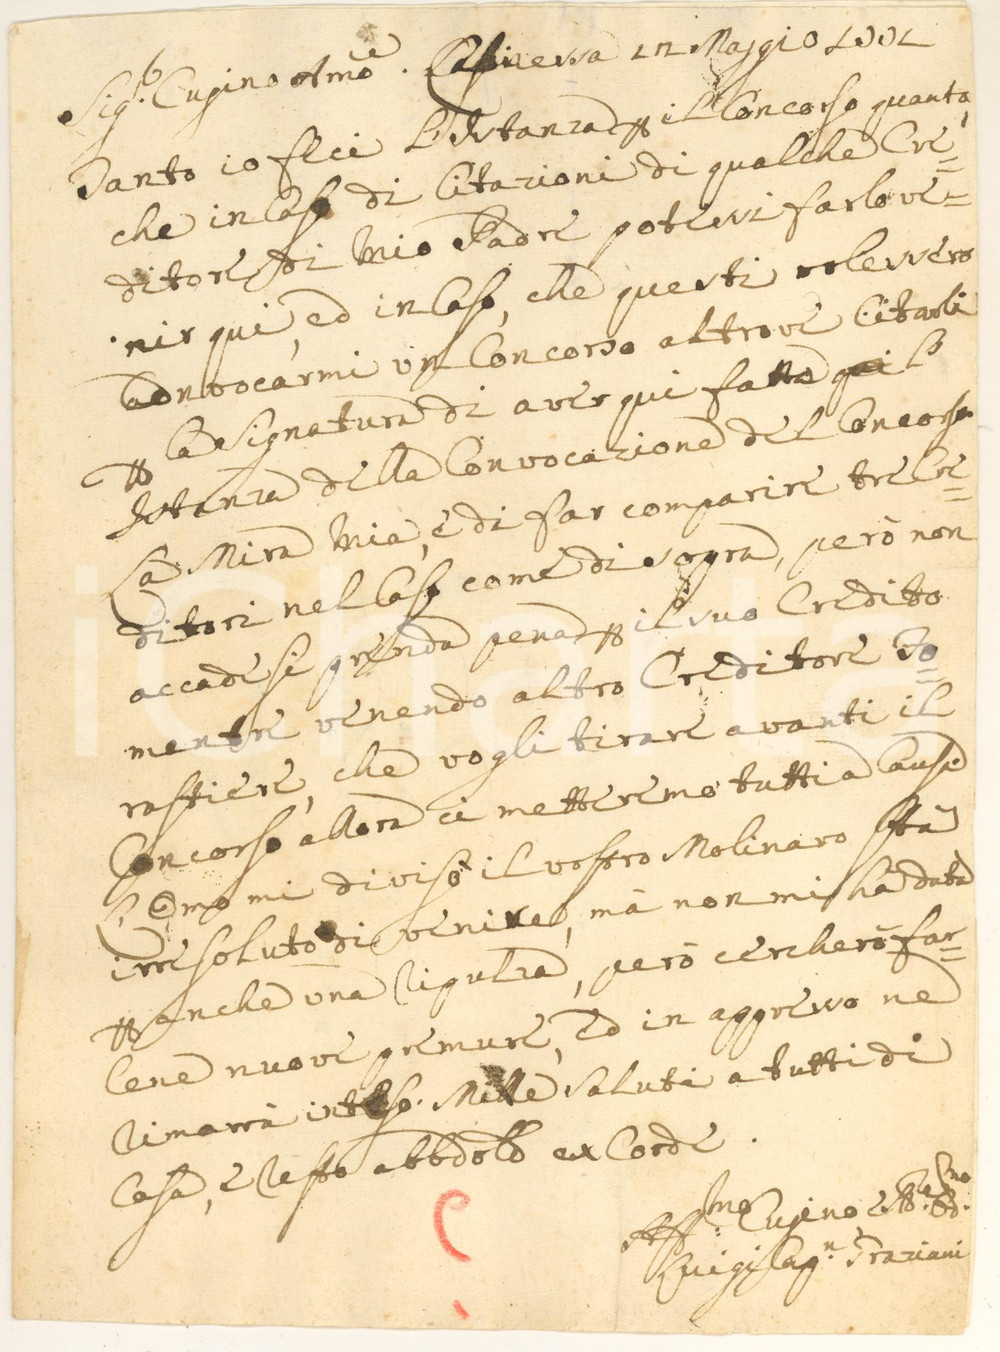 Sig.r Cugino Am.o e . Casi nessa 12 Maggio
Tanto io feci l'Istanza p il Concorso quanto,
che in Caso di Citazioni di qualche Cre=
ditore di Mio Padre potessi farlo ve=
nir qui, ed in Caso, che questi volessero
Convocarmi un Concorso altrove Citarli
p la Signatura di aver qui fatto qui l'
Istanza della Convocazione del Concorso
La Mira Mia, è di far comparire tre Cre=
ditori nel Caso come di sopra, però non
accade si prenda pena p il suo Credito
mentre venendo altro Creditore Fo=
rastiere, che vogli tirare avanti il
Concorso allora ci metteremo tutti a Causa
L'Omo mi divisò il vostro Molinaro stà
irresoluto di venire, mà non mi hà data
p anche una ripulza, però cercherò far=
Cene nuove premure, Ed in appresso ne
rimarrà inteso. Mille saluti a tutti di
Casa, e resto abbdolo ex Corde .
Aff.mo Cugino, e
Luigi Cap.n Graziani